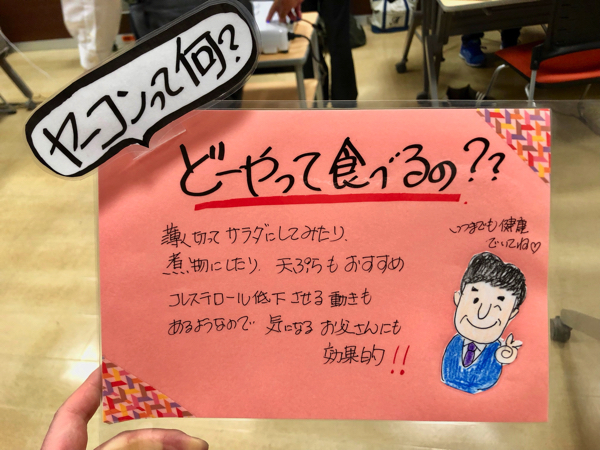 ヤーコンって何?
どーやって食べるの??
薄く切ってサラダにしてみたり、
煮物にしたり、天ぷらもおすすめ
コレステロール低下させる動きも
あるようなので 気になるお父さんにも
効果的!!
いつまでも健康
でいてね♡